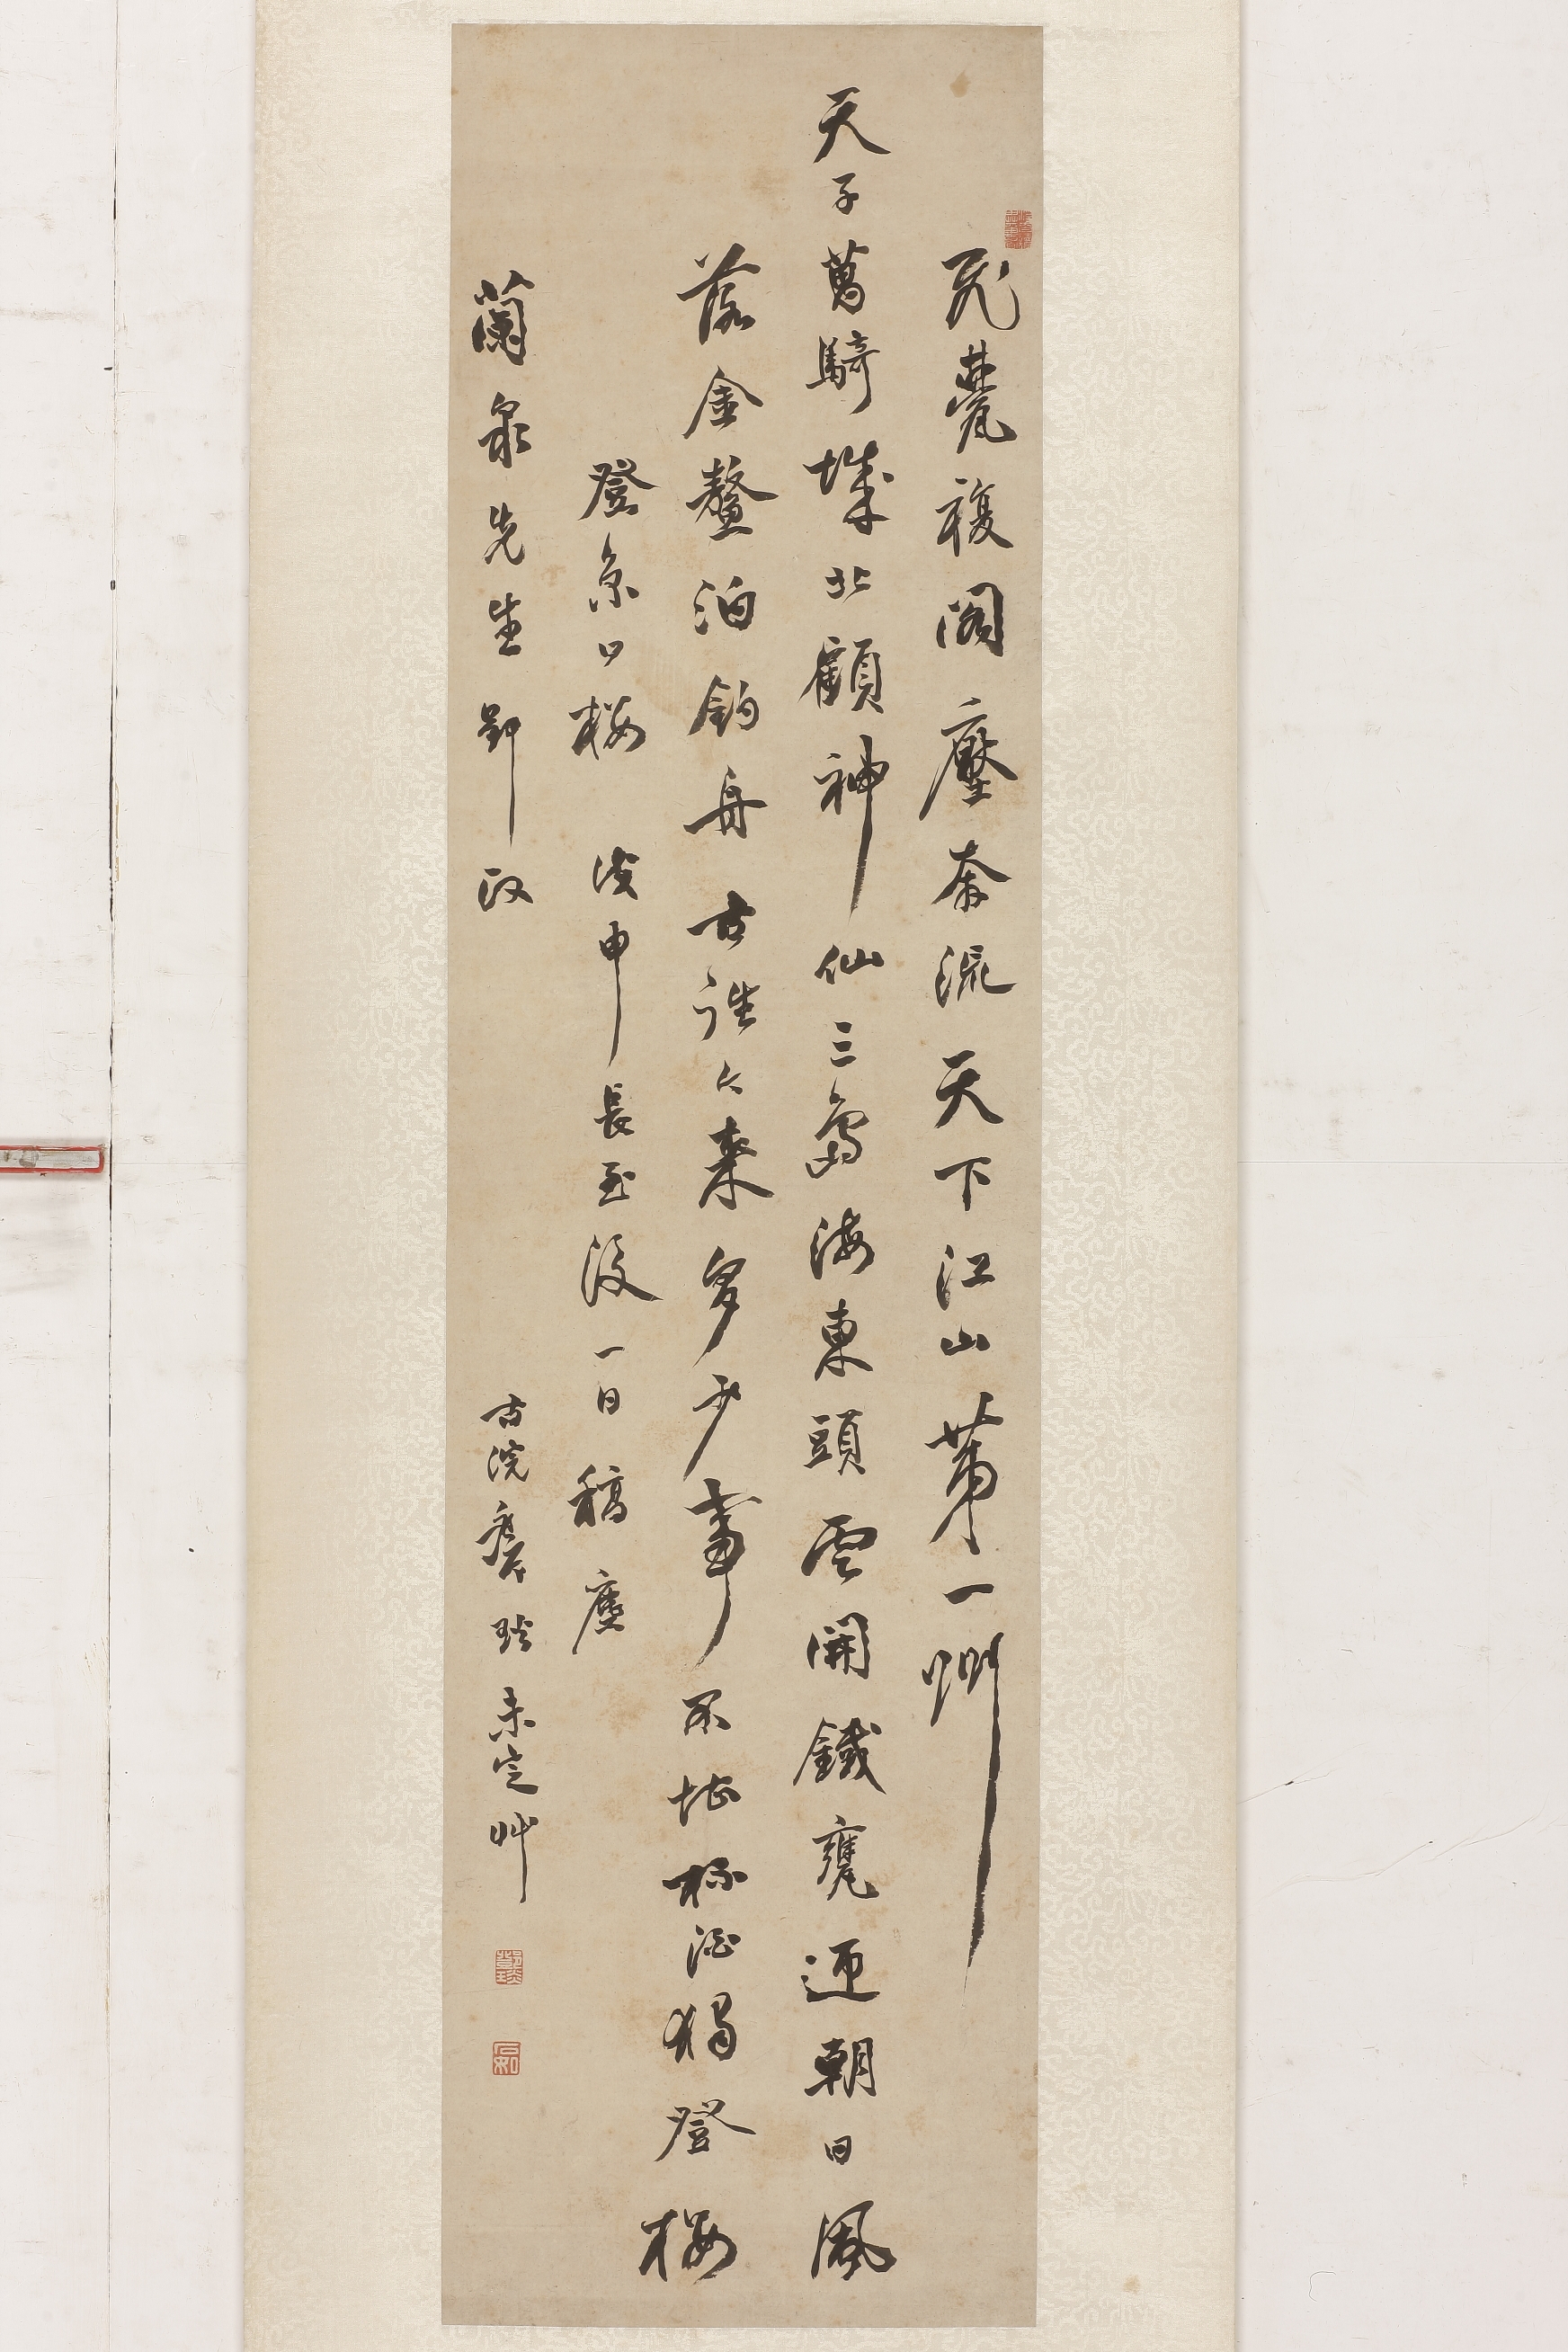 飛甍複閣壓奔流天下江山第一州
天子萬騎城北顧神仙三島海東頭雲開鐵甕迎朝日風
落金鰲泊釣舟古往今來多少事不堪杯酒獨登樓
登京口樓 戊申長至後一日稿塵
蘭泉先生郢政 古浣鄧琰未定艸
鄧琰
石如